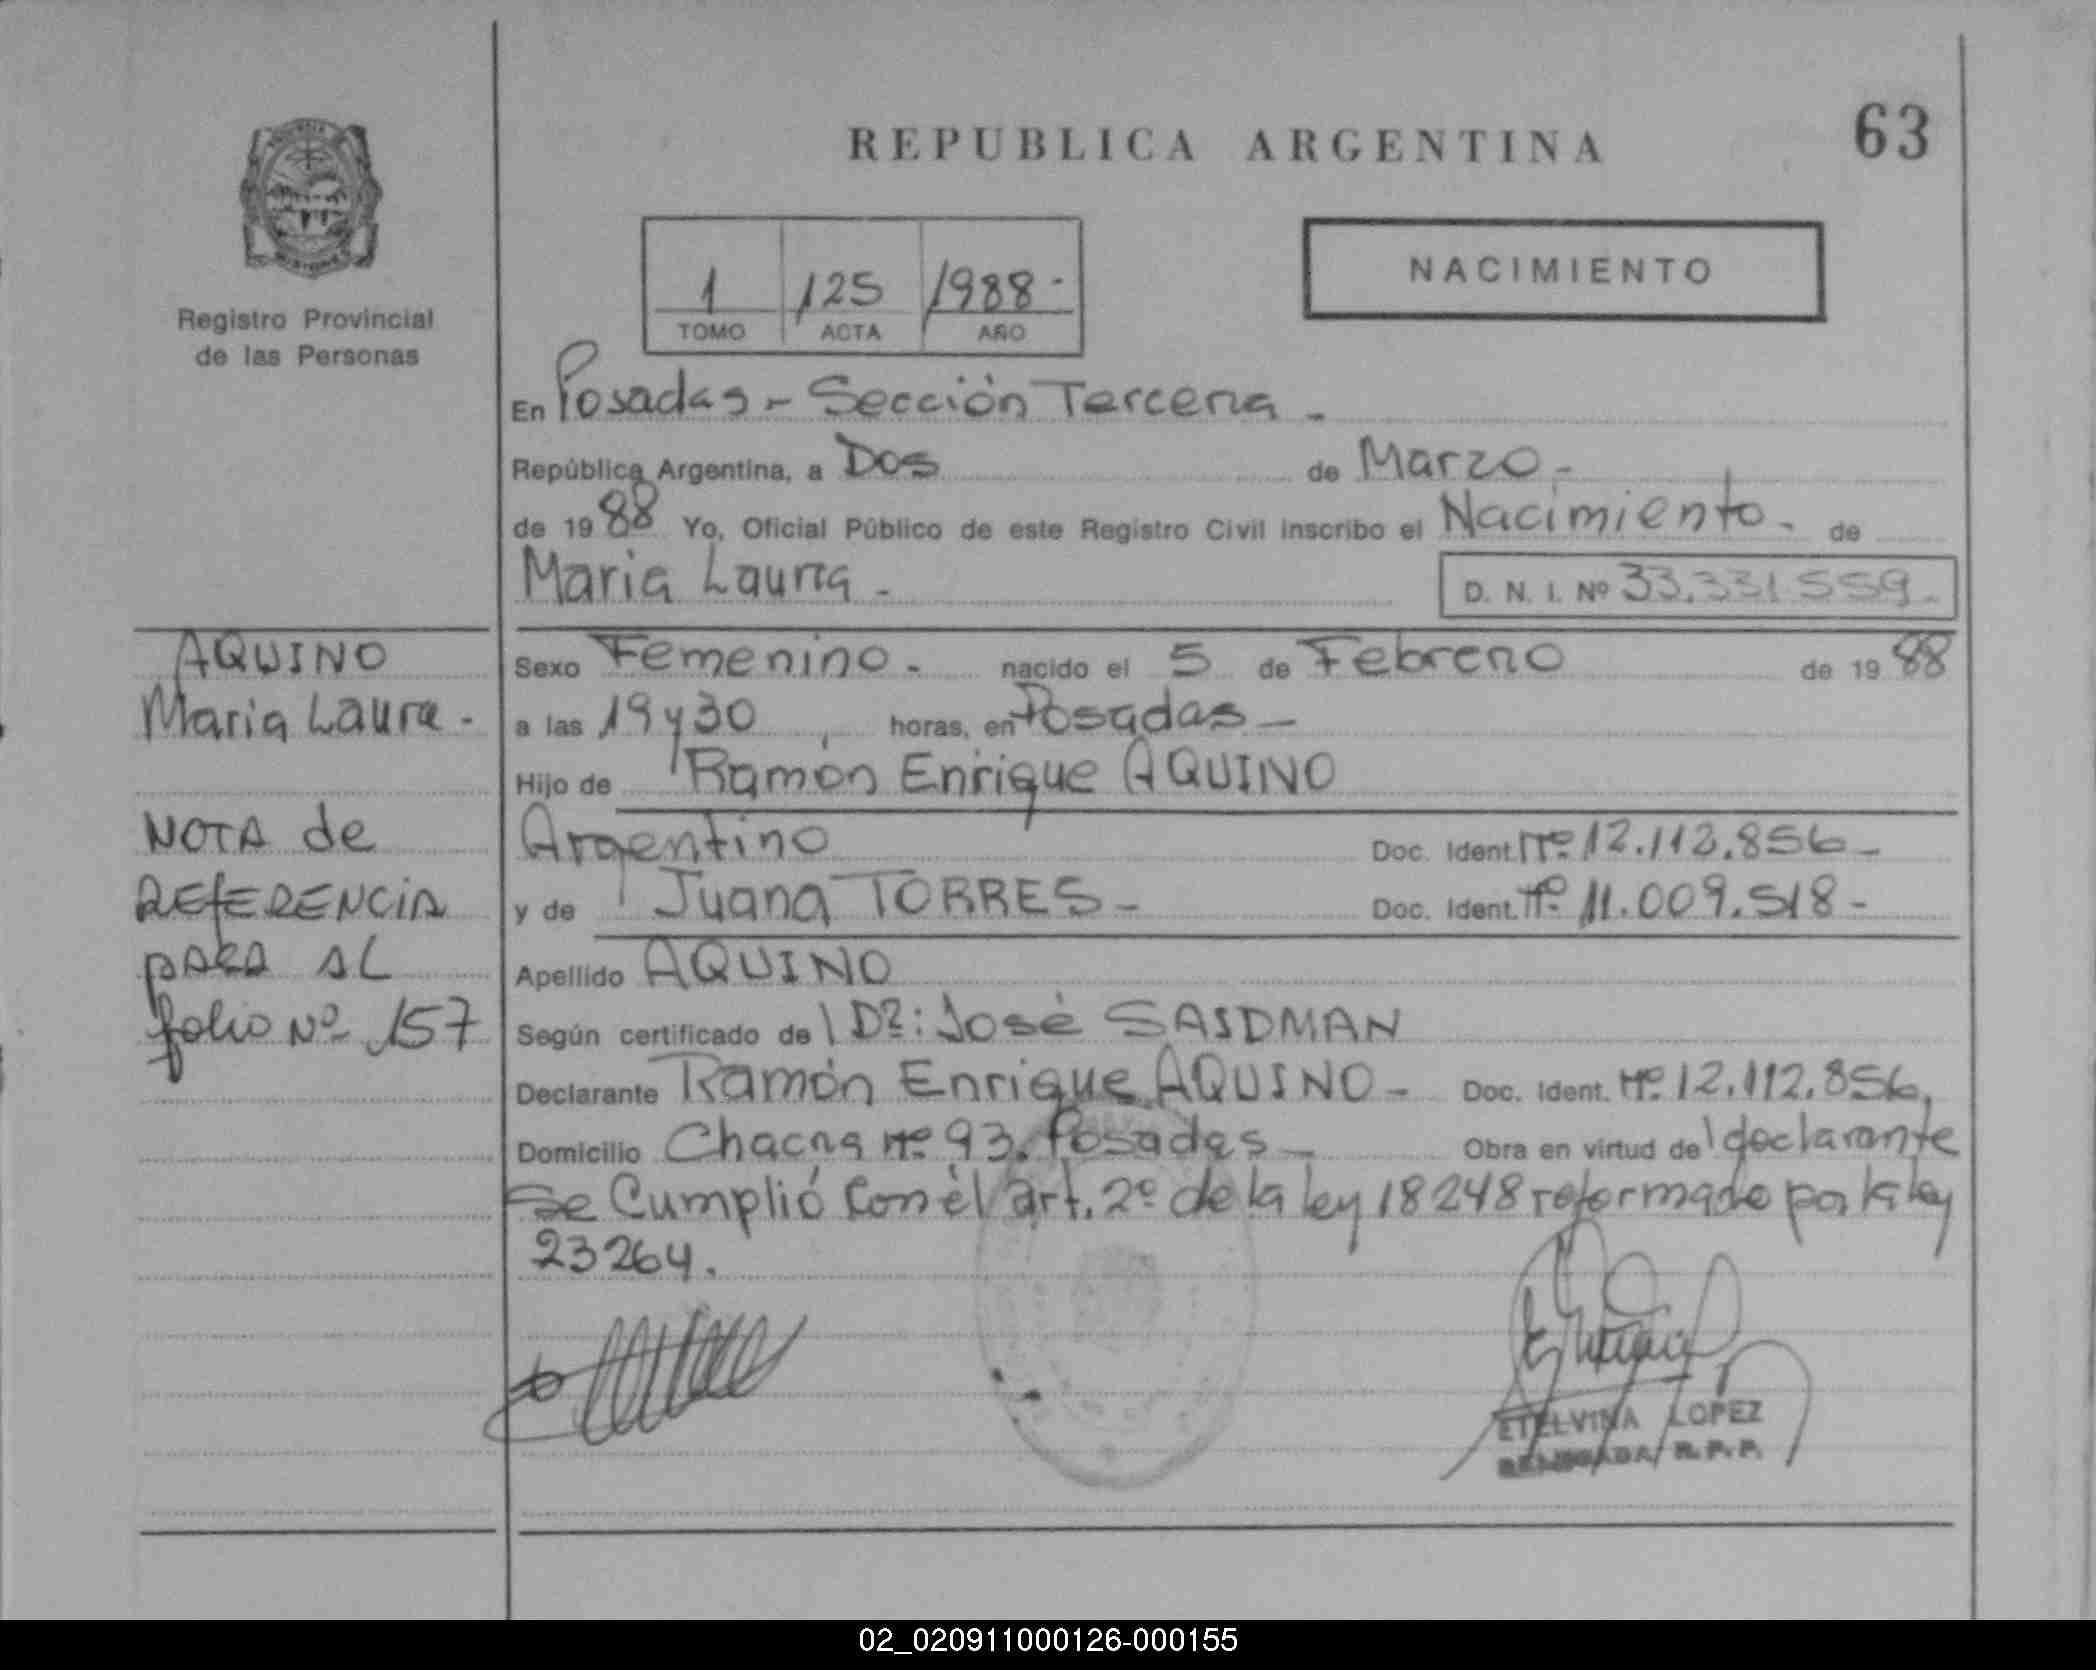 REPUBLICA ARGENTINA
63
Registro Provincial
de las Personas
1 125 1988-
TOMO ACTA AÑO
NACIMIENTO
En Posadas - Sección Tercera -
República Argentina, a Dos de Marzo -
de 1988 Yo, Oficial Público de este Registro Civil inscribo el Nacimiento - de
Maria Laura -
D. N. I. Nº 33.331559-
AQUINO
Maria Laura -
NOTA de
REFERENCIA
PARA AL
folio Nº 157
Sexo Femenino - nacido el 5 de Febrero de 1988
a las 19 y 30 horas, en Posadas -
Hijo de Ramón Enrique AQUINO
Argentino Doc. Ident. Nº 12.112.856-
y de Juana TORRES - Doc. Ident. Nº 11.009.518-
Apellido AQUINO
Según certificado de Dr: José SAIDMAN
Declarante Ramón Enrique AQUINO - Doc. Ident. Nº 12.112.856,
Domicilio Chacra nº 93. Posadas - Obra en virtud de declarante
Se Cumplió con él art. 2º de la ley 18248 reformado por la ley
23264.
ETELVINA LOPEZ
R. P. P.
02_020911000126-000155